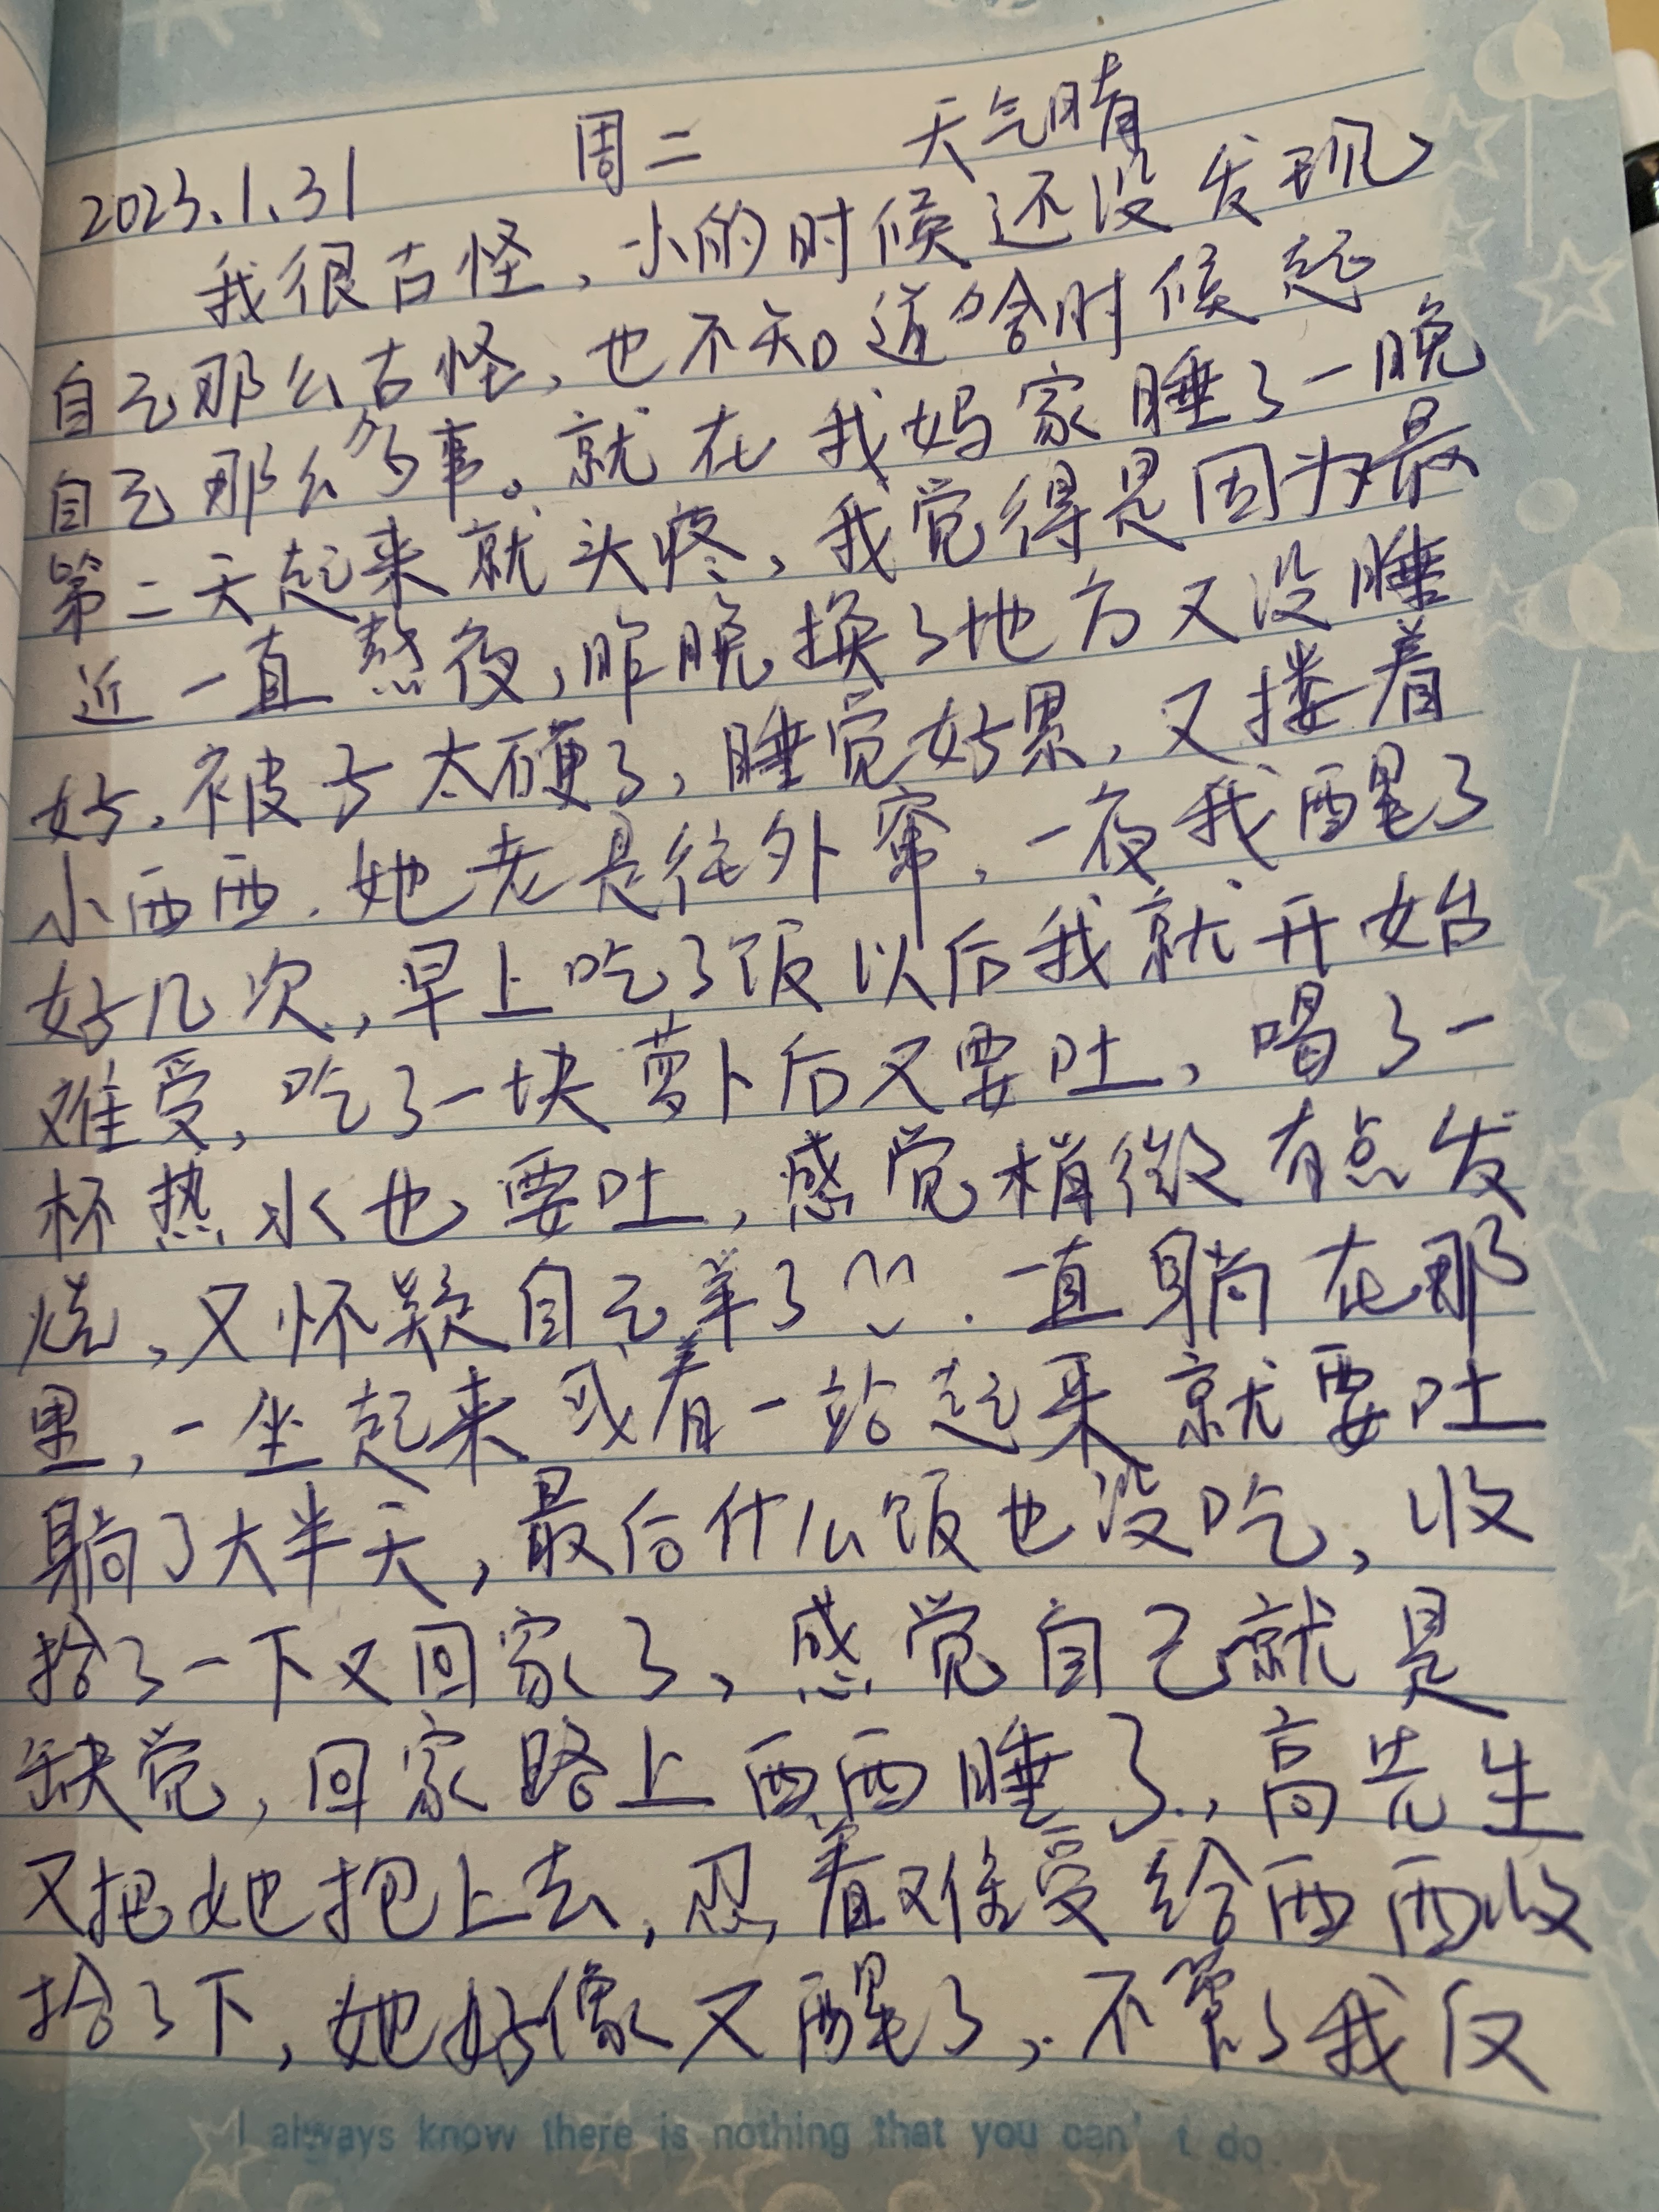 2023.1.31 周二 天气晴
我很古怪，小的时候还没发现
自己那么古怪，也不知道啥时候起
自己那么多事。就在我妈家睡了一晚
第二天起来就头疼，我觉得是因为最
近一直熬夜，昨晚换了地方又没睡
好，被子太硬了，睡觉好累，又搂着
小西西，她老是往外窜，一夜我醒了
好几次，早上吃了饭以后我就开始
难受，吃了一块萝卜后又要吐，喝了一
杯热水也要吐，感觉稍微有点发
烧，又怀疑自己羊了. 一直躺在那
里，一坐起来或着一站起来就要吐
躺了大半天，最后什么饭也没吃，收
拾了一下又回家了，感觉自己就是
缺觉，回家路上西西睡了，高先生
又把她抱上去，忍着难受给西西收
拾了下，她好像又醒了，不管了我反
I always know there is nothing that you can't do.